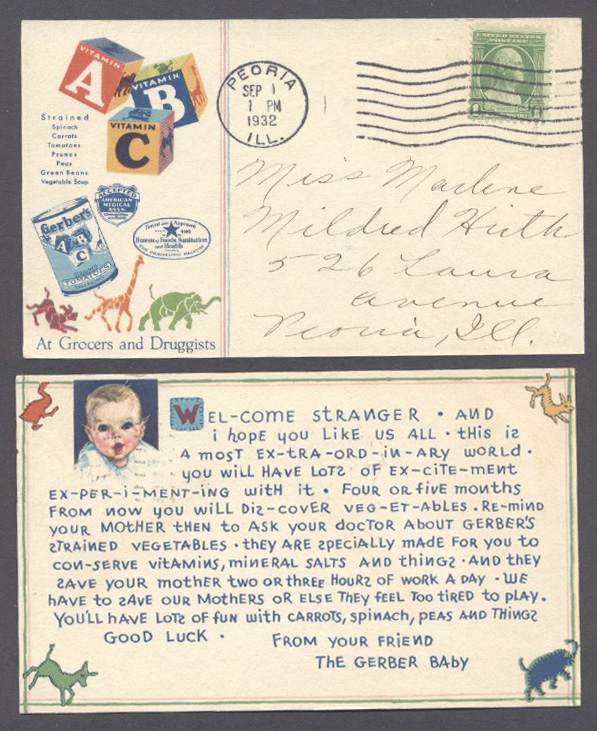 VITAMIN
A
VITAMIN
B
VITAMIN
C
Strained
Spinach
Carrots
Tomatoes
Prunes
Peas
Green Beans
Vegetable Soup
ACCEPTED
AMERICAN
MEDICAL
ASSN.
Gerber's
A B C
STRAINED
TOMATOES
Tested and Approved
Bureau of Foods Sanitation
and Health
GOOD HOUSEKEEPING MAGAZINE
At Grocers and Druggists
PEORIA
SEP 1
1 PM
1932
ILL.
UNITED STATES
POSTAGE
Miss Marlene
Mildred Huth
526 Laura
avenue
Peoria, Ill.
WEL-COME STRANGER • AND
i hOPE YOU LiKE US ALL • tHiS iS
A MOST EX-tRA-ORD-iN-ARY WORLD •
YOU WiLL HAVE LOTS OF EX-CitE-MENT
EX-PER-i-MENT-iNG WitH it • FOUR OR FiVE MONtHS
FROM NOW YOU WiLL DiS-COVER VEG-ET-ABLES • RE-MiND
YOUR MOtHER tHEN tO ASK YOUR DOCtOR ABOUT GERBER'S
StRAiNED VEGETABLES • tHEY ARE SPECiALLY MADE FOR YOU tO
CON-SERVE ViTAMiNS, MiNERAL SALTS AND tHiNGS • AND tHEY
SAVE YOUR MOtHER TWO OR tHREE HOURS OF WORK A DAY • WE
hAVE tO SAVE OUR MOtHERS OR ELSE tHEY FEEL TOO tiRED tO PLAY.
YOU'LL HAVE LOTS OF FUN WitH CARROTS, SPiNACH, PEAS AND tHiNGS
GOOD LUCK • FROM YOUR FRiEND
THE GERBER BAbY